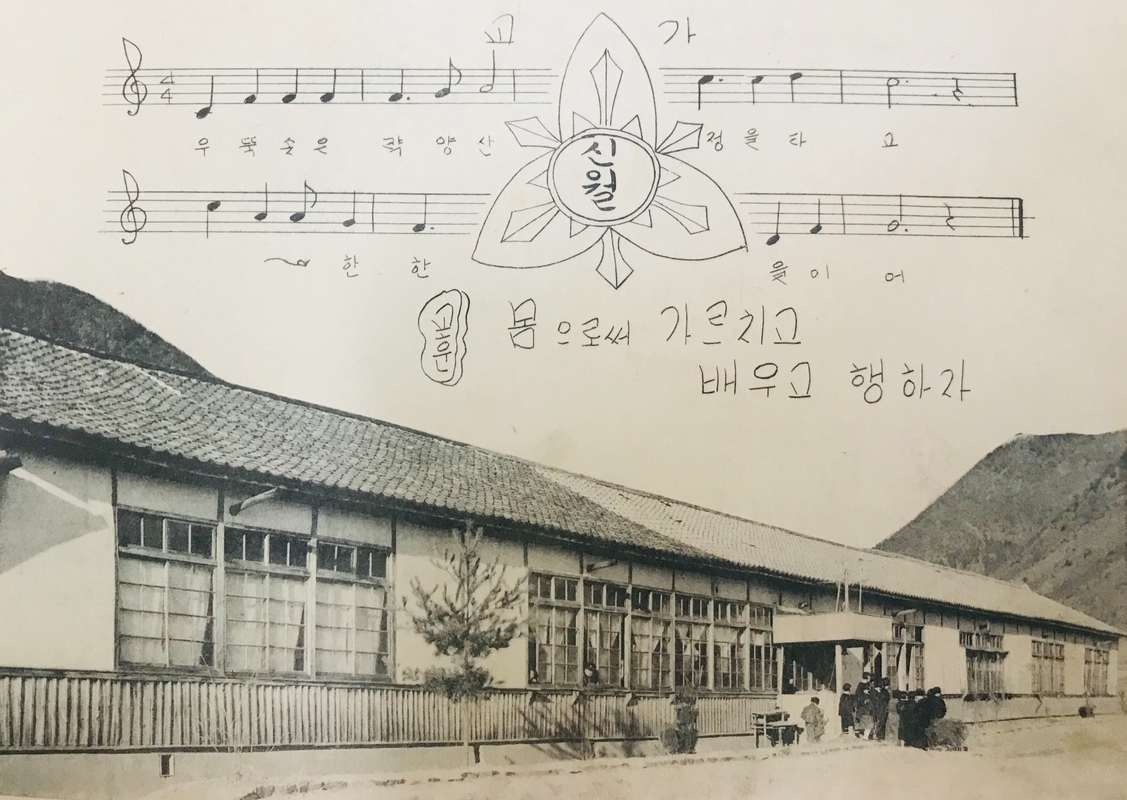 교 가
4 4
우 뚝 솟 은 략 양 산 정 을 타 고
신월
한 한 을 이 어
교훈 몸으로써 가르치고
배우고 행하자